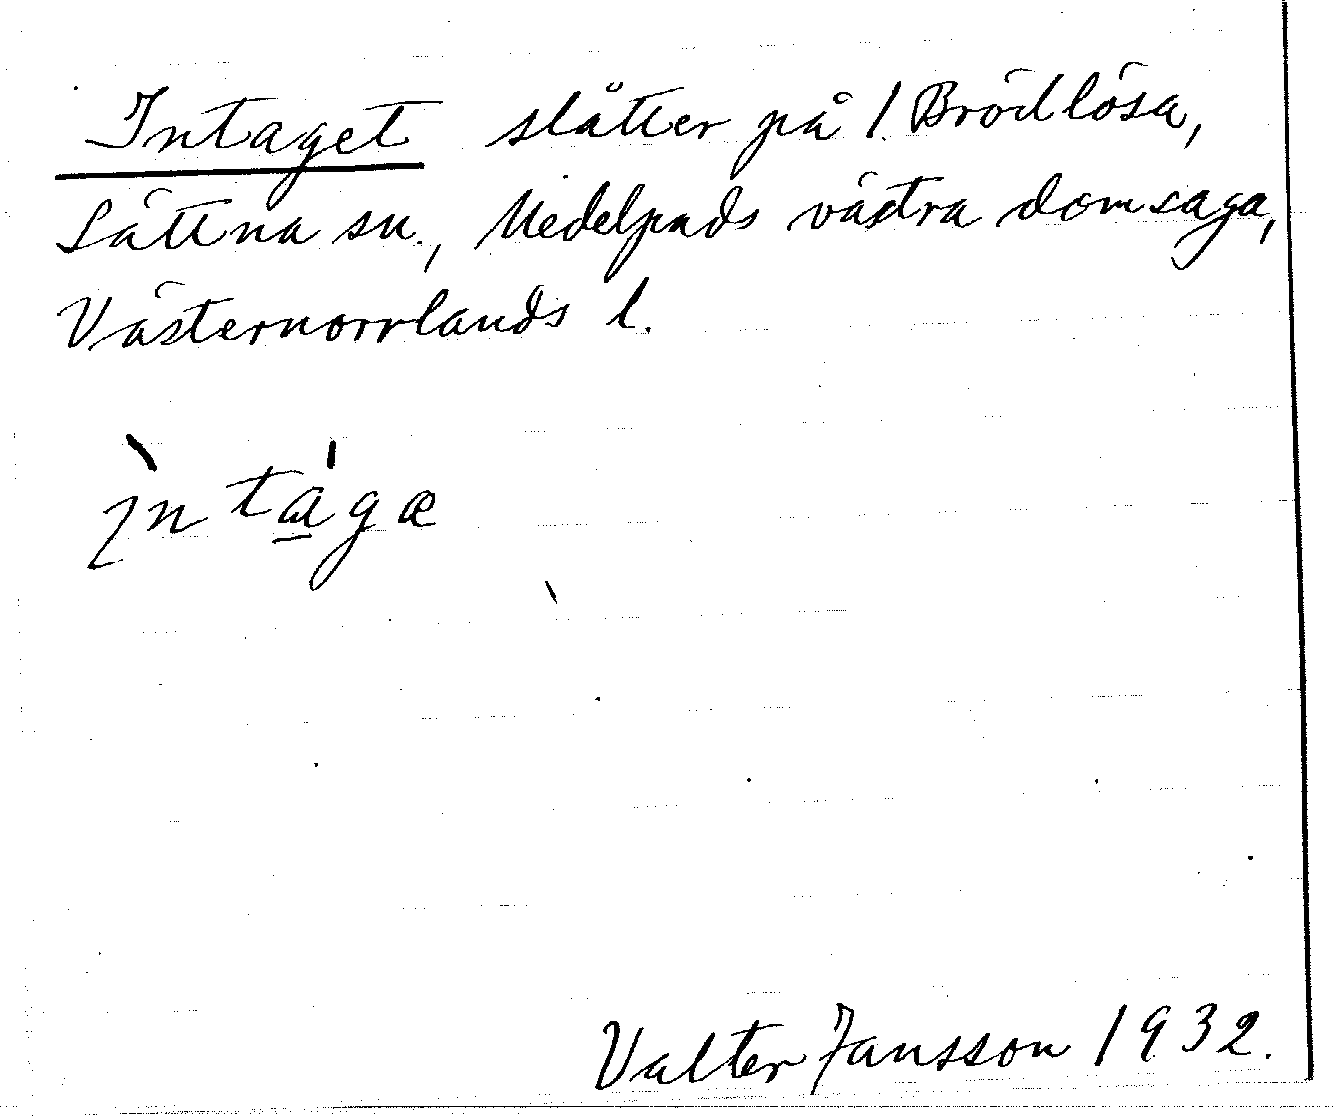 Intaget slåtter på 1 Brödlösa,
Sättna sn., Medelpads västra domsaga,
Västernorrlands l.
ìntágæ
Valter Jansson 1932.